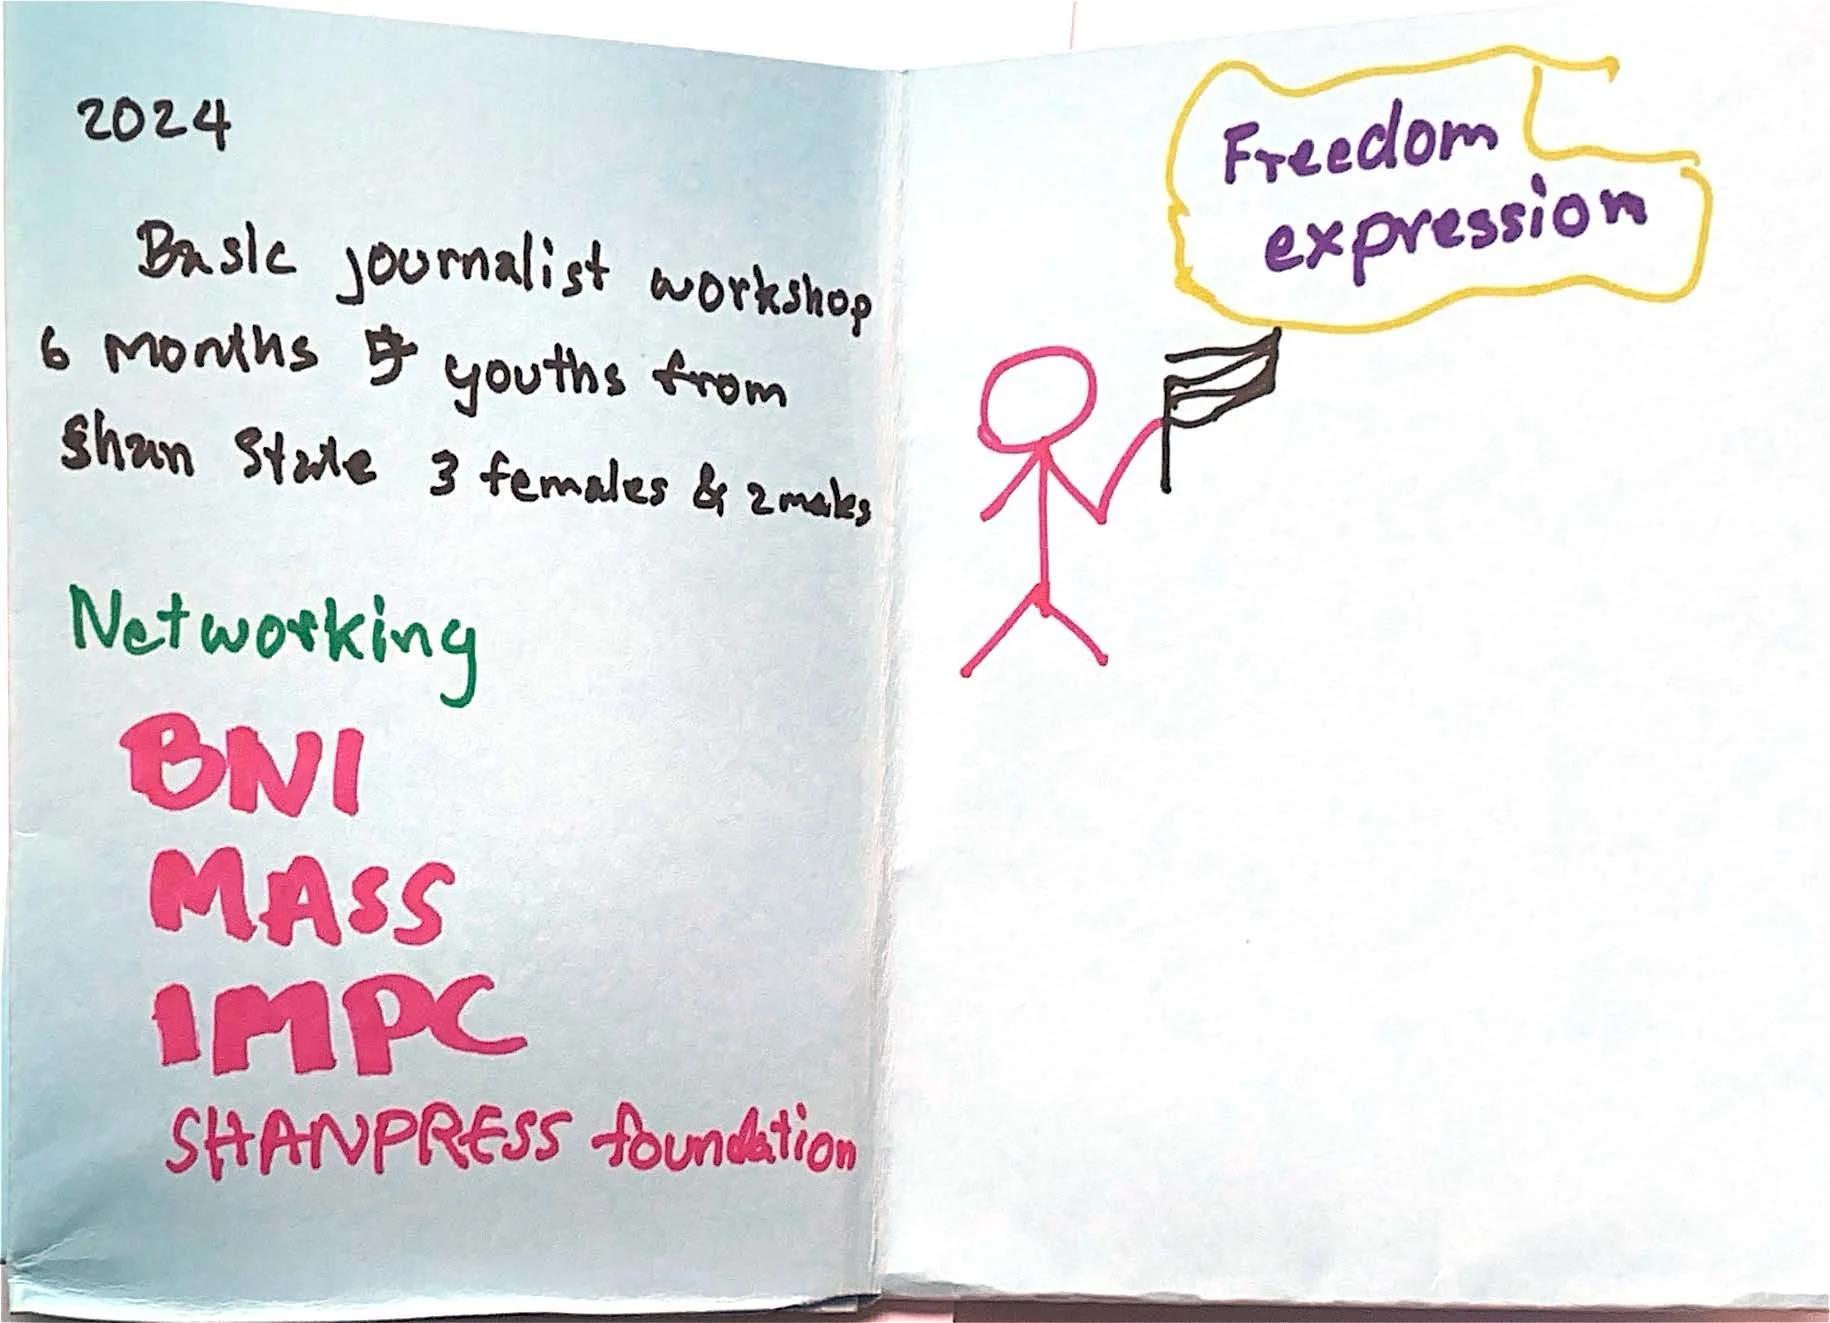 2024
Basic journalist workshop
6 months 5 youths from
Shan State 3 females & 2 males
Networking
BNI
MASS
IMPC
SHANPRESS foundation
Freedom
expression